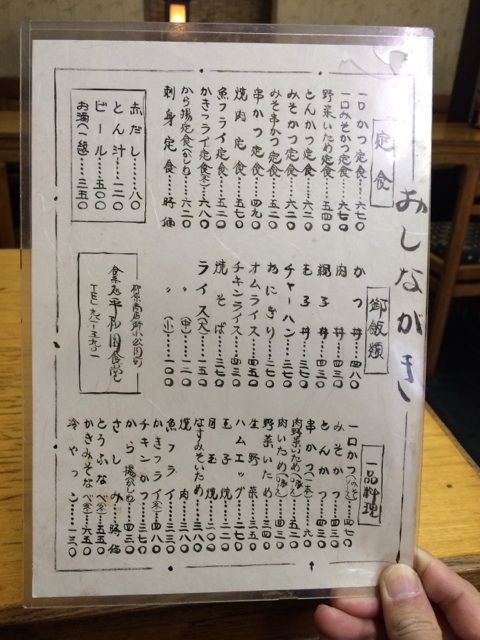 おしながき
定食
一口かつ定食……六七〇
一口みそかつ定食……六七〇
野菜いため定食……五四〇
とんかつ定食……六二〇
みそかつ定食……六二〇
みそ串かつ定食……五二〇
串かつ定食……四九〇
焼肉定食……五七〇
魚フライ定食……五二〇
かきフライ定食(冬)……六八〇
から揚定食(かしわ)……六二〇
刺身定食……時価
赤だし……八〇
とん汁……一二〇
ビール……五〇〇
お酒(一級)……三五〇
御飯類
かつ丼……四八〇
肉丼……四三〇
親子丼……四三〇
玉子丼……三七〇
チャーハン……三七〇
おにぎり……二七〇
オムライス……四五〇
チキンライス……四三〇
焼そば……三七〇
ライス(大)……一五〇
〃(中)……一二〇
〃(小)……一〇〇
柳原商店街小公園前
食事処 平和園食堂
一品料理
一口かつ(みそ)……四七〇
みそかつ……四三〇
とんかつ……四三〇
串かつ(一本)……六〇
肉野菜いため……五二〇
肉いため……四三〇
野菜いため……三五〇
生野菜……二七〇
ハムエッグ……二七〇
玉子焼……二一〇
目玉焼……二〇〇
なすみそいため……三八〇
焼肉……三八〇
魚フライ……三三〇
かきフライ(冬)……四八〇
チキンかつ……三七〇
から揚(かしわ)……四三〇
さしみ……時価
とうふなべ(冬)……五五〇
かきみそなべ(冬)……六五〇
冷ヤッコ……一三〇